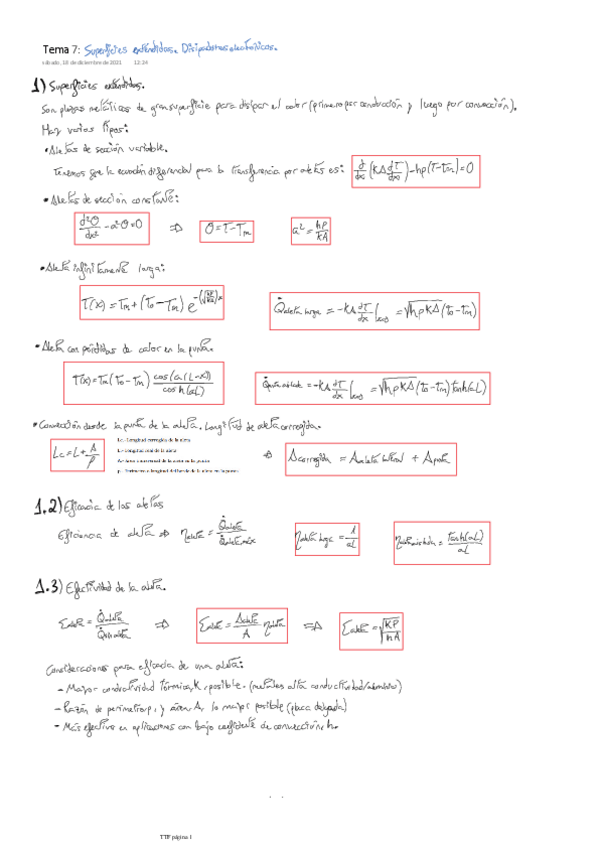 Tema 7: Superficies extendidas. Disipadores electrónicos.
sábado, 18 de diciembre de 2021 12:24
1) Superficies extendidas.
Son piezas metálicas de gran superficie para disipar el calor (primero por conducción y luego por convección).
Hay varios tipos:
• Aletas de sección variable.
Tenemos que la ecuación diferencial para la transferencia por aletas es: d/dx (KA dT/dx) - hp(T-Tm) = 0
• Aletas de sección constante:
d²θ/dx² - a²θ = 0 ⇒ θ = T - Tm a² = hp/KA
• Aleta infinitamente larga:
T(x) = Tm + (To - Tm) e^-(√(hp/KA))x Q̇aleta larga = -KA dT/dx |x=0 = √hpKA (To - Tm)
• Aleta con pérdidas de calor en la punta.
T(x) = Tm (To - Tm) cos(a(L-x))/cosh(aL) = -KA dT/dx |x=0 = √hpKA (To - Tm) tanh(aL)
• Convección desde la punta de la aleta. Longitud de aleta corregida.
Lc = L + A/p
Lc.- Longitud corregida de la aleta
L.- Longitud real de la aleta
⇒ Acorregida = Aaleta lateral + Apunta
1.2) Eficacia de las aletas
Eficiencia de aleta ⇒ ηaleta = Q̇aleta/Q̇aleta máx ηaleta larga = 1/aL = tanh(aL)/aL
1.3) Efectividad de la aleta.
Σaleta = Q̇aleta/Q̇sin aleta ⇒ Σaleta = Aaleta/A ηaleta ⇒ Σaleta = √KP/hA
Consideraciones para eficacia de una aleta:
- Mayor conductividad térmica, K, posible. (metales alta conductividad/aluminio)
- Razón de perímetro p, y área A, lo mayor posible (placa delgada)
- Más efectivo en aplicaciones con bajo coeficiente de convección h.
TTF página 1